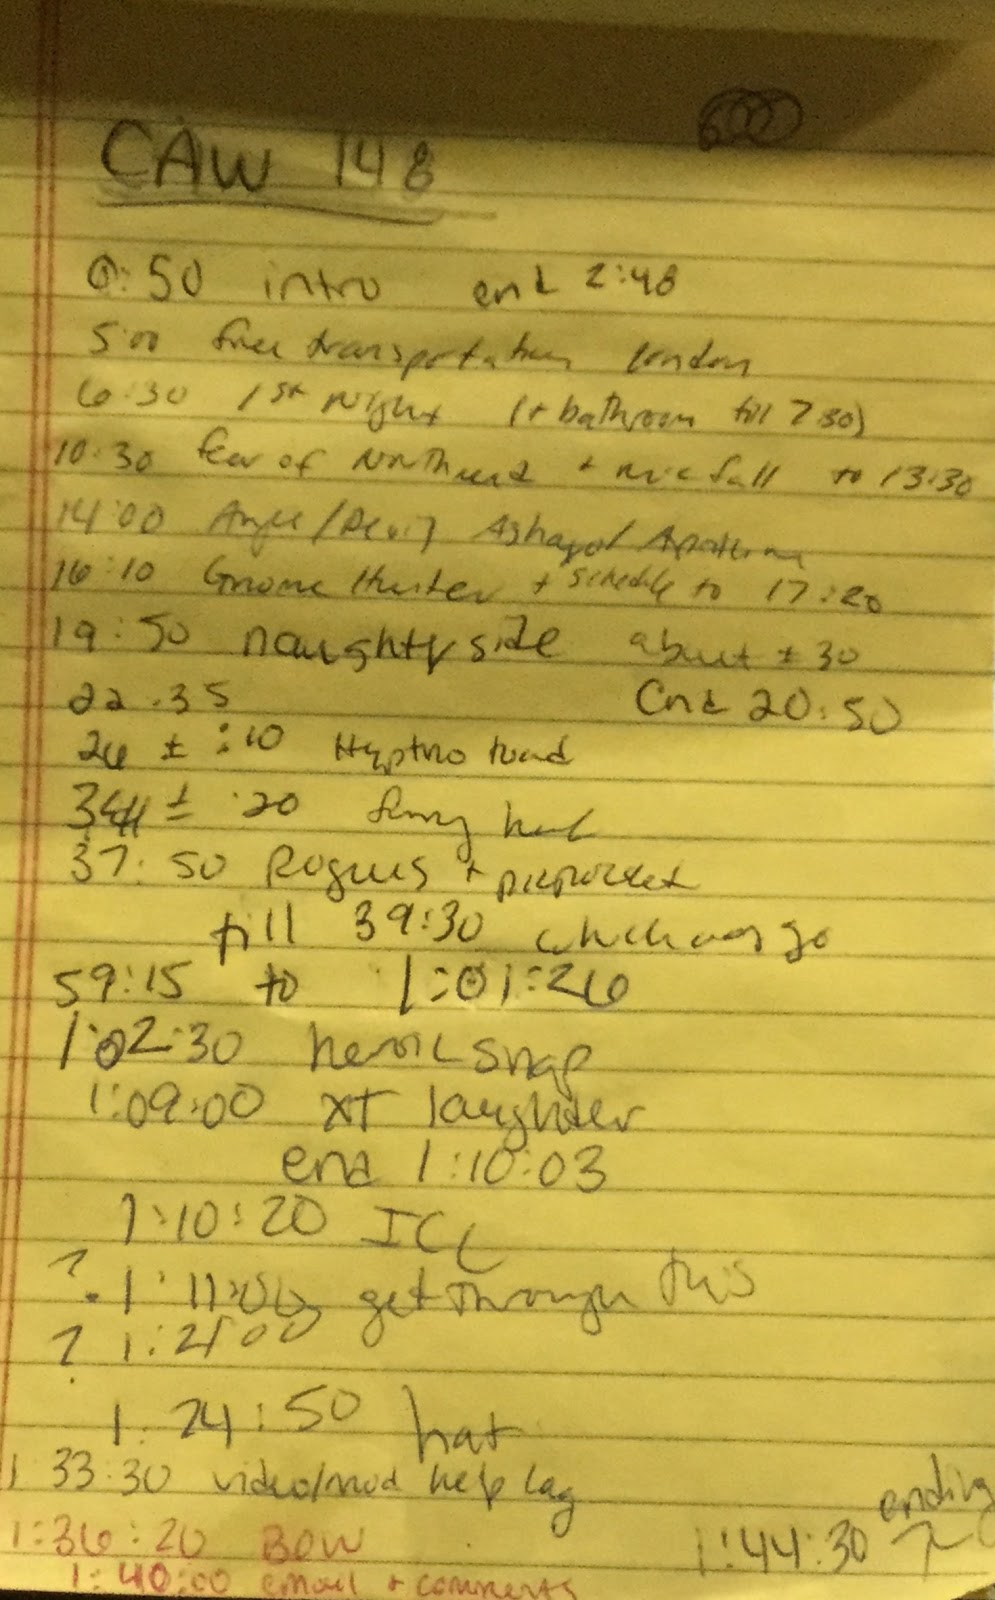 CAW 148
0:50 intro end 2:48
5:00 free transportation london
6:30 1st Night (+ bathroom till 7:30)
10:30 fear of Northrend + mic fall to 13:30
14:00 Angel/Devil
16:10 Gnome Hunter + schedule to 17:20
19:50 naughty side about ± 30
22:35 End 20:50
26 ± :10 Hyptno toad
± :20
37:50 Rogues + pickpocket
till 39:30 which way go
59:15 to 1:01:26
1:02:30 heroic snap
1:09:00 XT laughter
end 1:10:03
1:10:20 ICC
? 1:11:00 get through this
? 1:21:00
1:24:50 hat
1:33:30 video/mod help lag
ending
1:36:20 BOW 1:44:30
1:40:00 email + comments